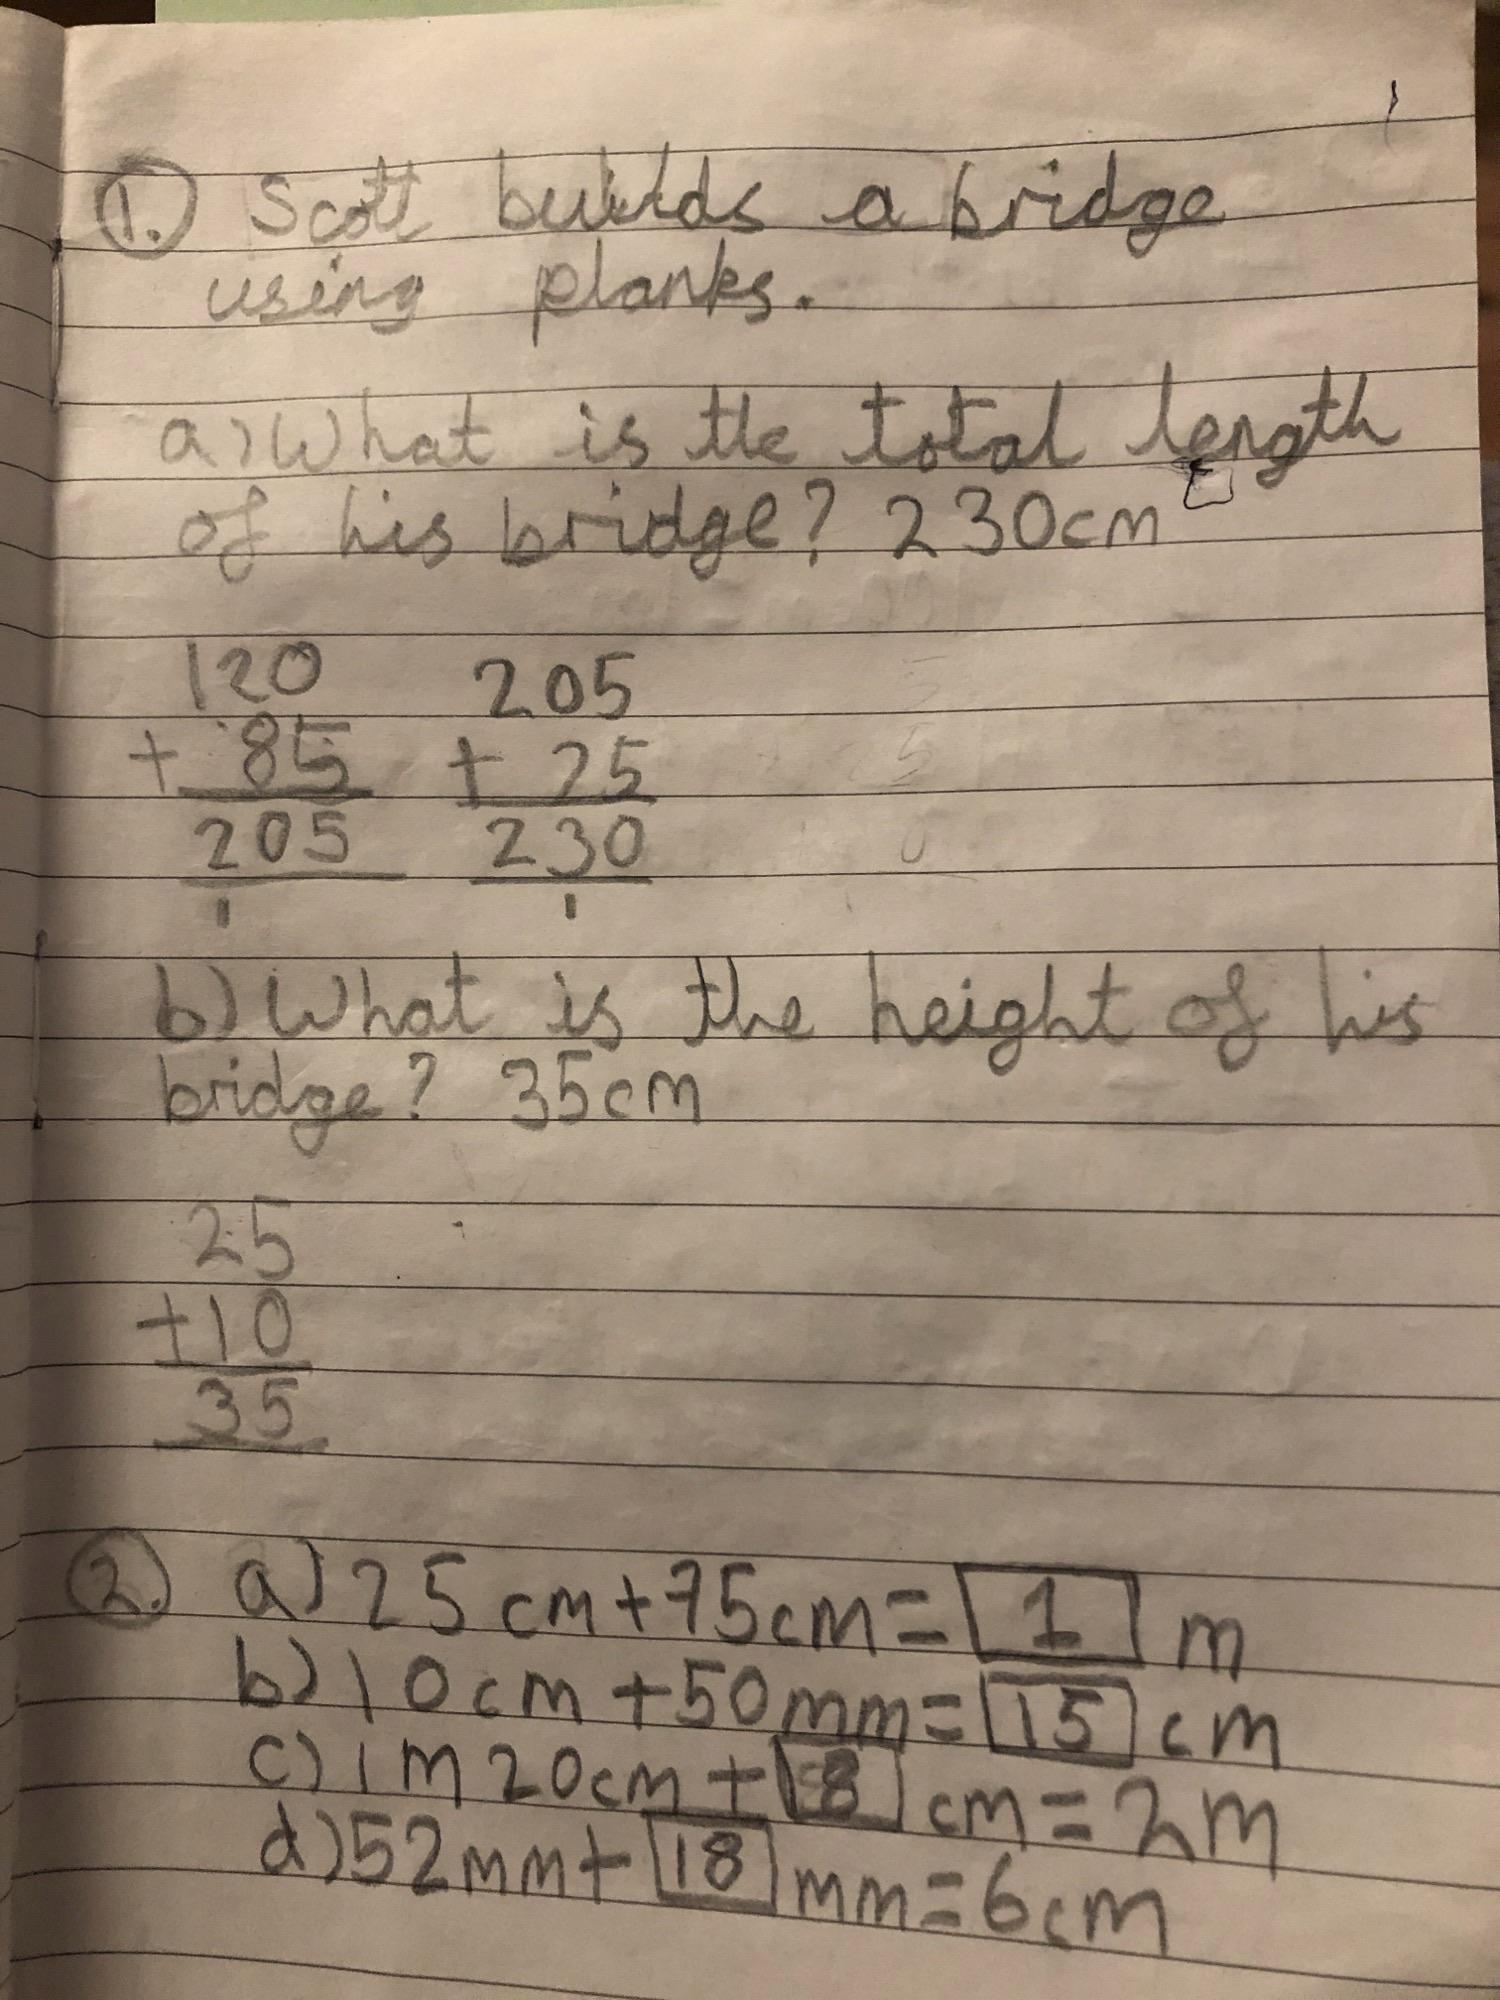 1. Scott builds a bridge
using planks.
a) What is the total length
of his bridge? 230cm
120 205
+ 85 + 25
205 230
1 1
b) What is the height of his
bridge? 35cm
25
+10
35
2. a) 25cm+75cm= 1 m
b) 10cm+50mm= 15 cm
c) 1m 20cm + 8 cm = 2m
d) 52mm+ 18 mm=6cm